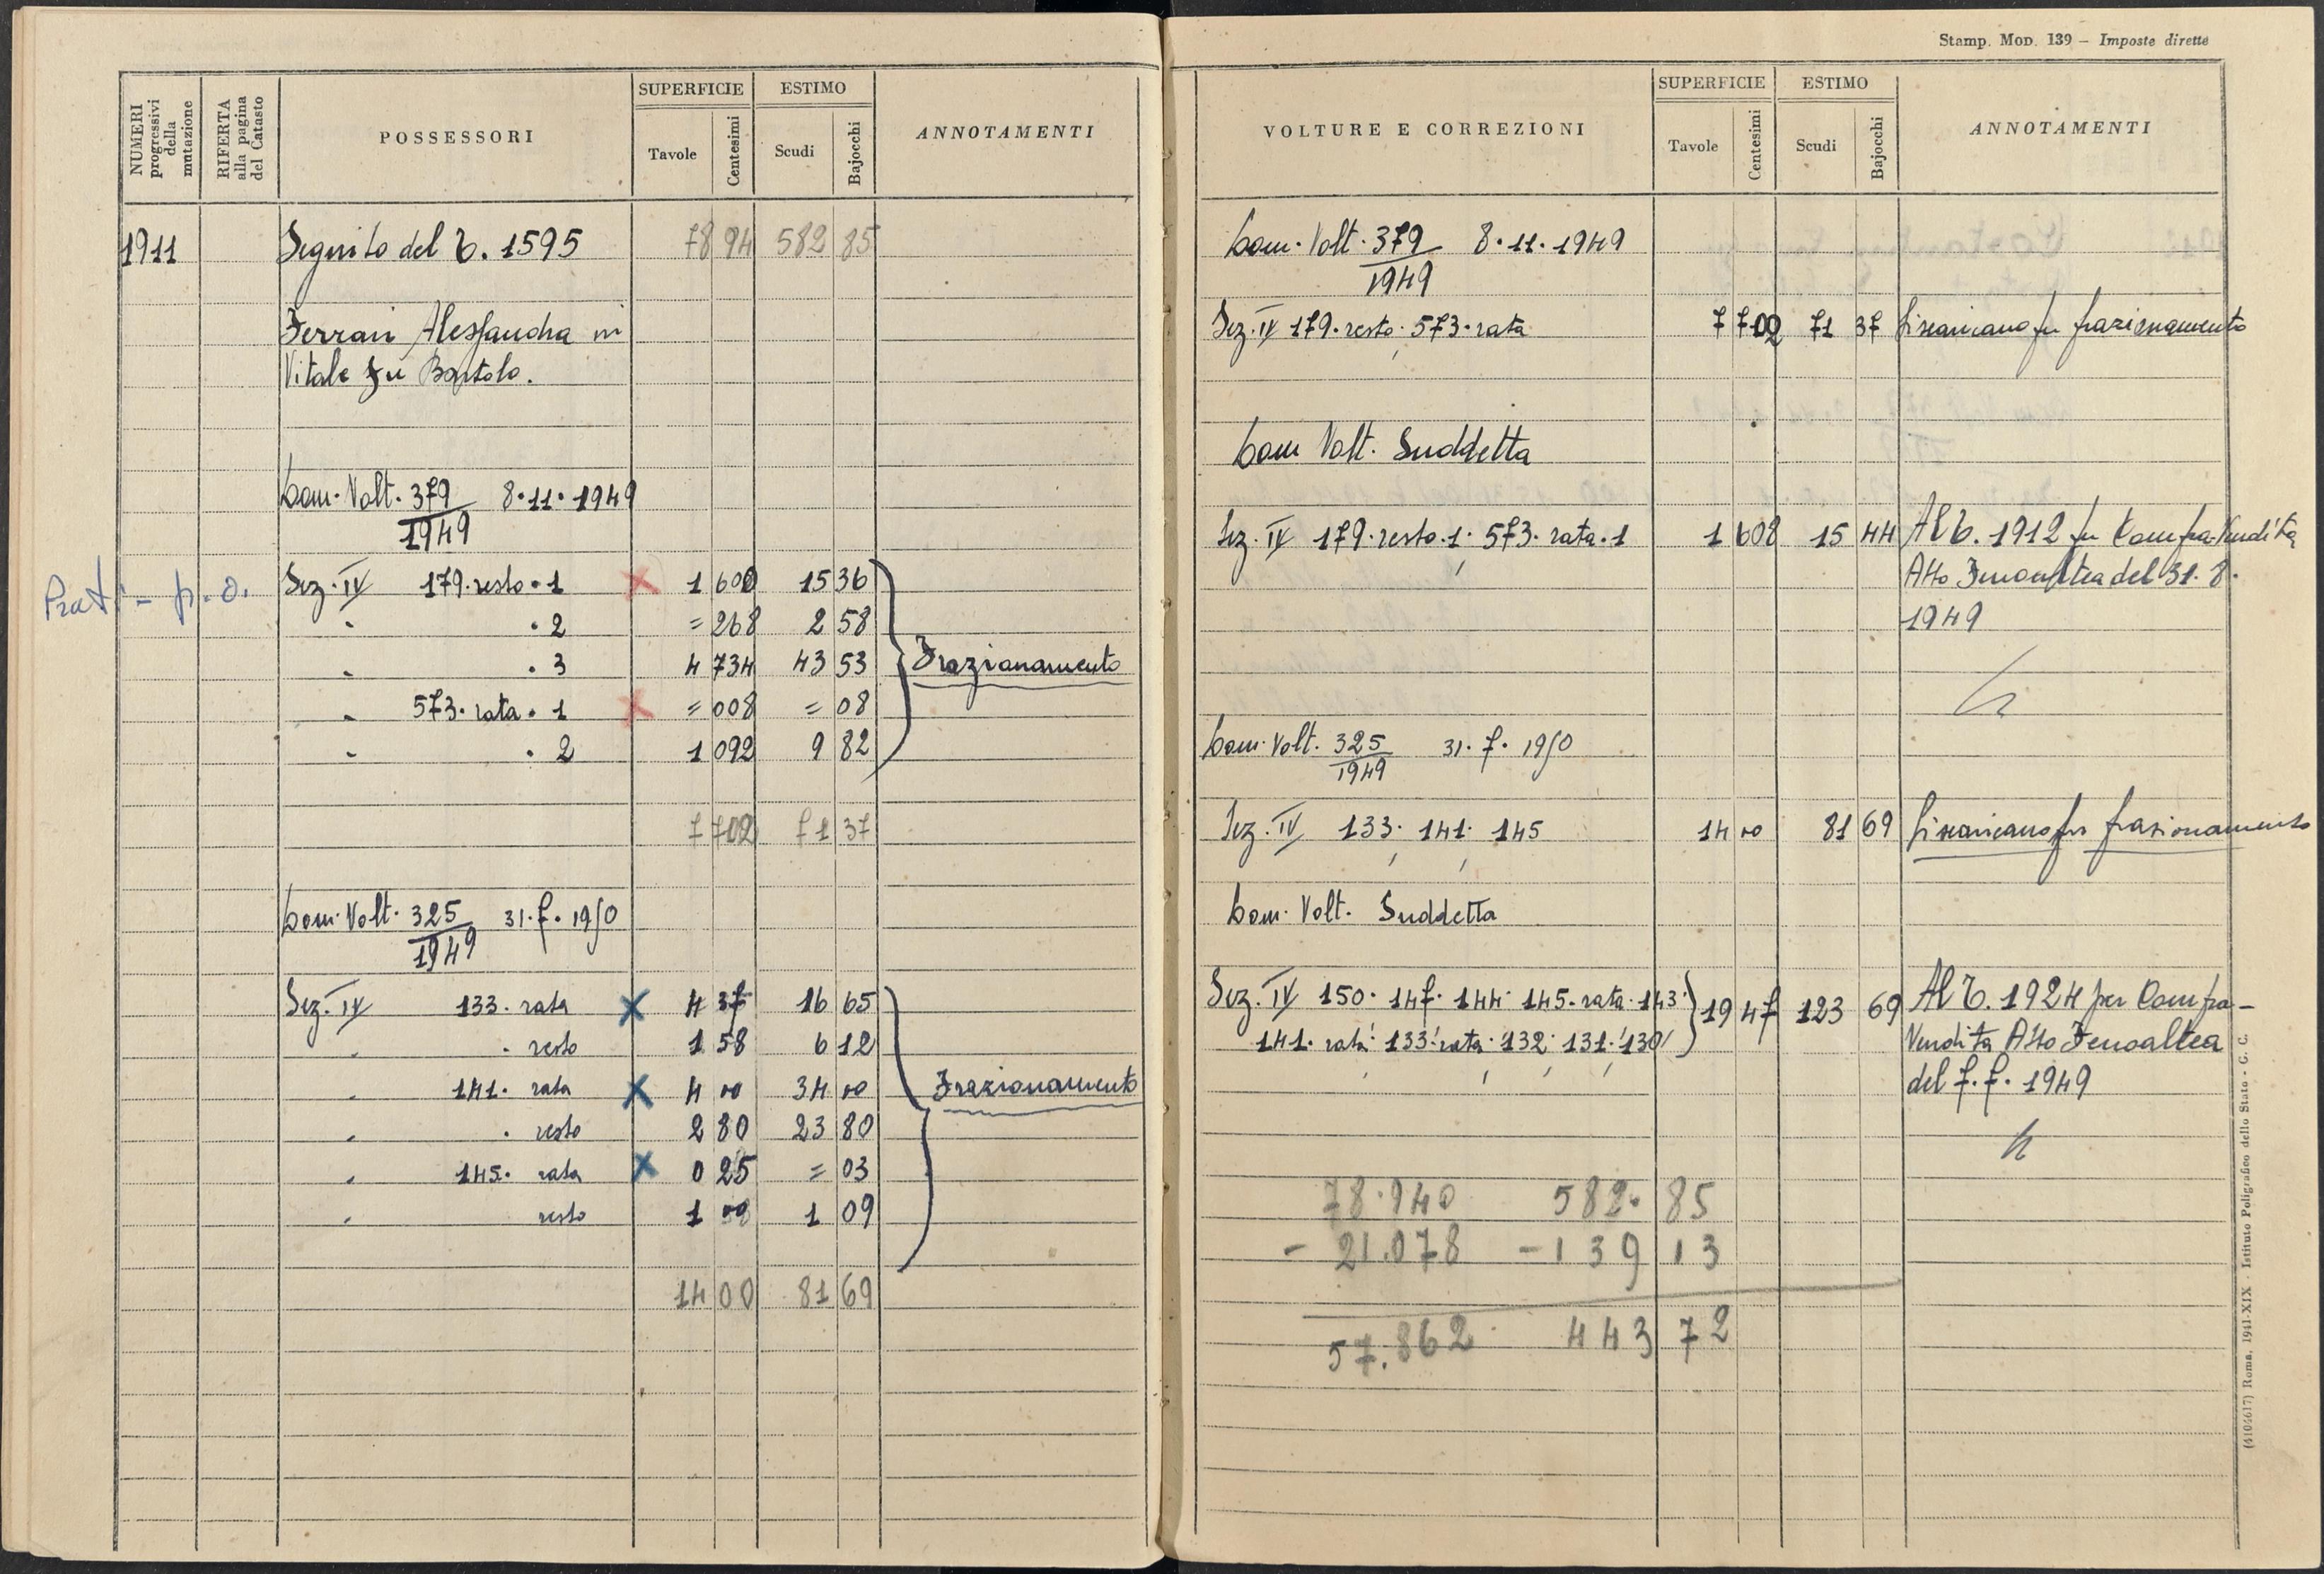 NUMERI progressivi della mutazione
RIFERTA alla pagina del Catasto
POSSESSORI
SUPERFICIE
Tavole
Centesimi
ESTIMO
Scudi
Bajocchi
ANNOTAMENTI
1911 Seguito del T. 1595 78 94 582 85
Ferrari Alessandra in
Vitale fu Bartolo.
Dom. Volt. 379 8.11.1949
1949
Prati - p.o. Sez. IV 179. resto. 1 X 1 600 15 36
" . 2 = 268 2 58
" . 3 4 734 43 53 Frazionamento
" 573. rata. 1 X = 008 = 08
" . 2 1 092 9 82
7 702 71 37
Dom. Volt. 325 31.7.1950
1949
Sez. IV 133. rata X 4 37 16 65
" . resto 1 58 6 12
" 141. rata X 4 00 34 00 Frazionamento
" . resto 2 80 23 80
" 145. rata X 0 25 = 03
" resto 1 00 1 09
14 00 81 69
Stamp. Mod. 139 - Imposte dirette
VOLTURE E CORREZIONI
SUPERFICIE
Tavole
Centesimi
ESTIMO
Scudi
Bajocchi
ANNOTAMENTI
Dom. Volt. 379 8.11.1949
1949
Sez. IV 179. resto. 573. rata 7 702 71 37 Discaricano per frazionamento
Dom Volt. Suddetta
Sez. IV 179. resto. 1. 573. rata. 1 1 608 15 44 Al T. 1912 per Compra-Vendita
Atto Fenoaltea del 31. 8.
1949
Dom. Volt. 325 31. 7. 1950
1949
Sez. IV 133. 141. 145 14 00 81 69 Discaricano per frazionamento
Dom. Volt. Suddetta
Sez. IV 150. 147. 144. 145. rata. 143. 19 47 123 69 Al T. 1924 per Compra-
141. rata. 133. rata. 132. 131. 130 Vendita Atto Fenoaltea
del 7. 7. 1949
78.940 582. 85
- 21.078 - 139 13
57.862 443 72
(4104617) Roma, 1941-XIX - Istituto Poligrafico dello Stato - G. C.